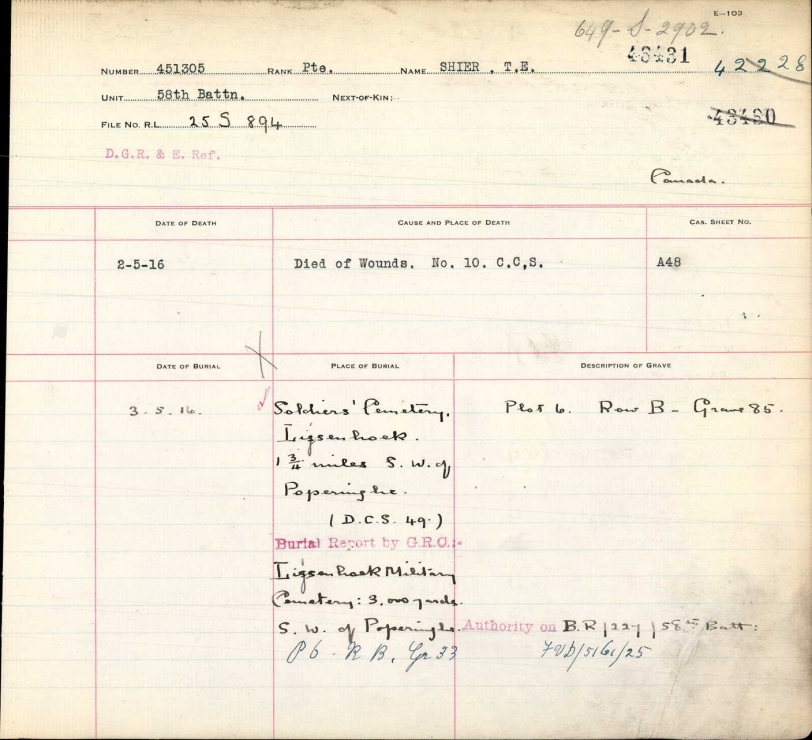 E-103
649-S-2902.
43431
42228
NUMBER 451305 RANK Pte. NAME SHIER, T.E.
UNIT 58th Battn. NEXT-OF-KIN:
43430
FILE NO. R.L. 25 S 894
D.G.R. & E. Ref.
Canada.
DATE OF DEATH CAUSE AND PLACE OF DEATH CAS. SHEET NO.
2-5-16 Died of Wounds. No. 10. C.C.S. A48
DATE OF BURIAL PLACE OF BURIAL DESCRIPTION OF GRAVE
3.5.16. Soldiers' Cemetery, Plot 6. Row B - Grave 85.
Lijssenhoek.
1 3/4 miles S.W. of
Poperinghe.
(D.C.S. 49.)
Burial Report by G.R.C.:-
Lijssenhoek Military
Cemetery: 3,000 yards.
S. W. of Poperinghe. Authority on B.R/227/58th Batt:
P6 - R B, Gr 33